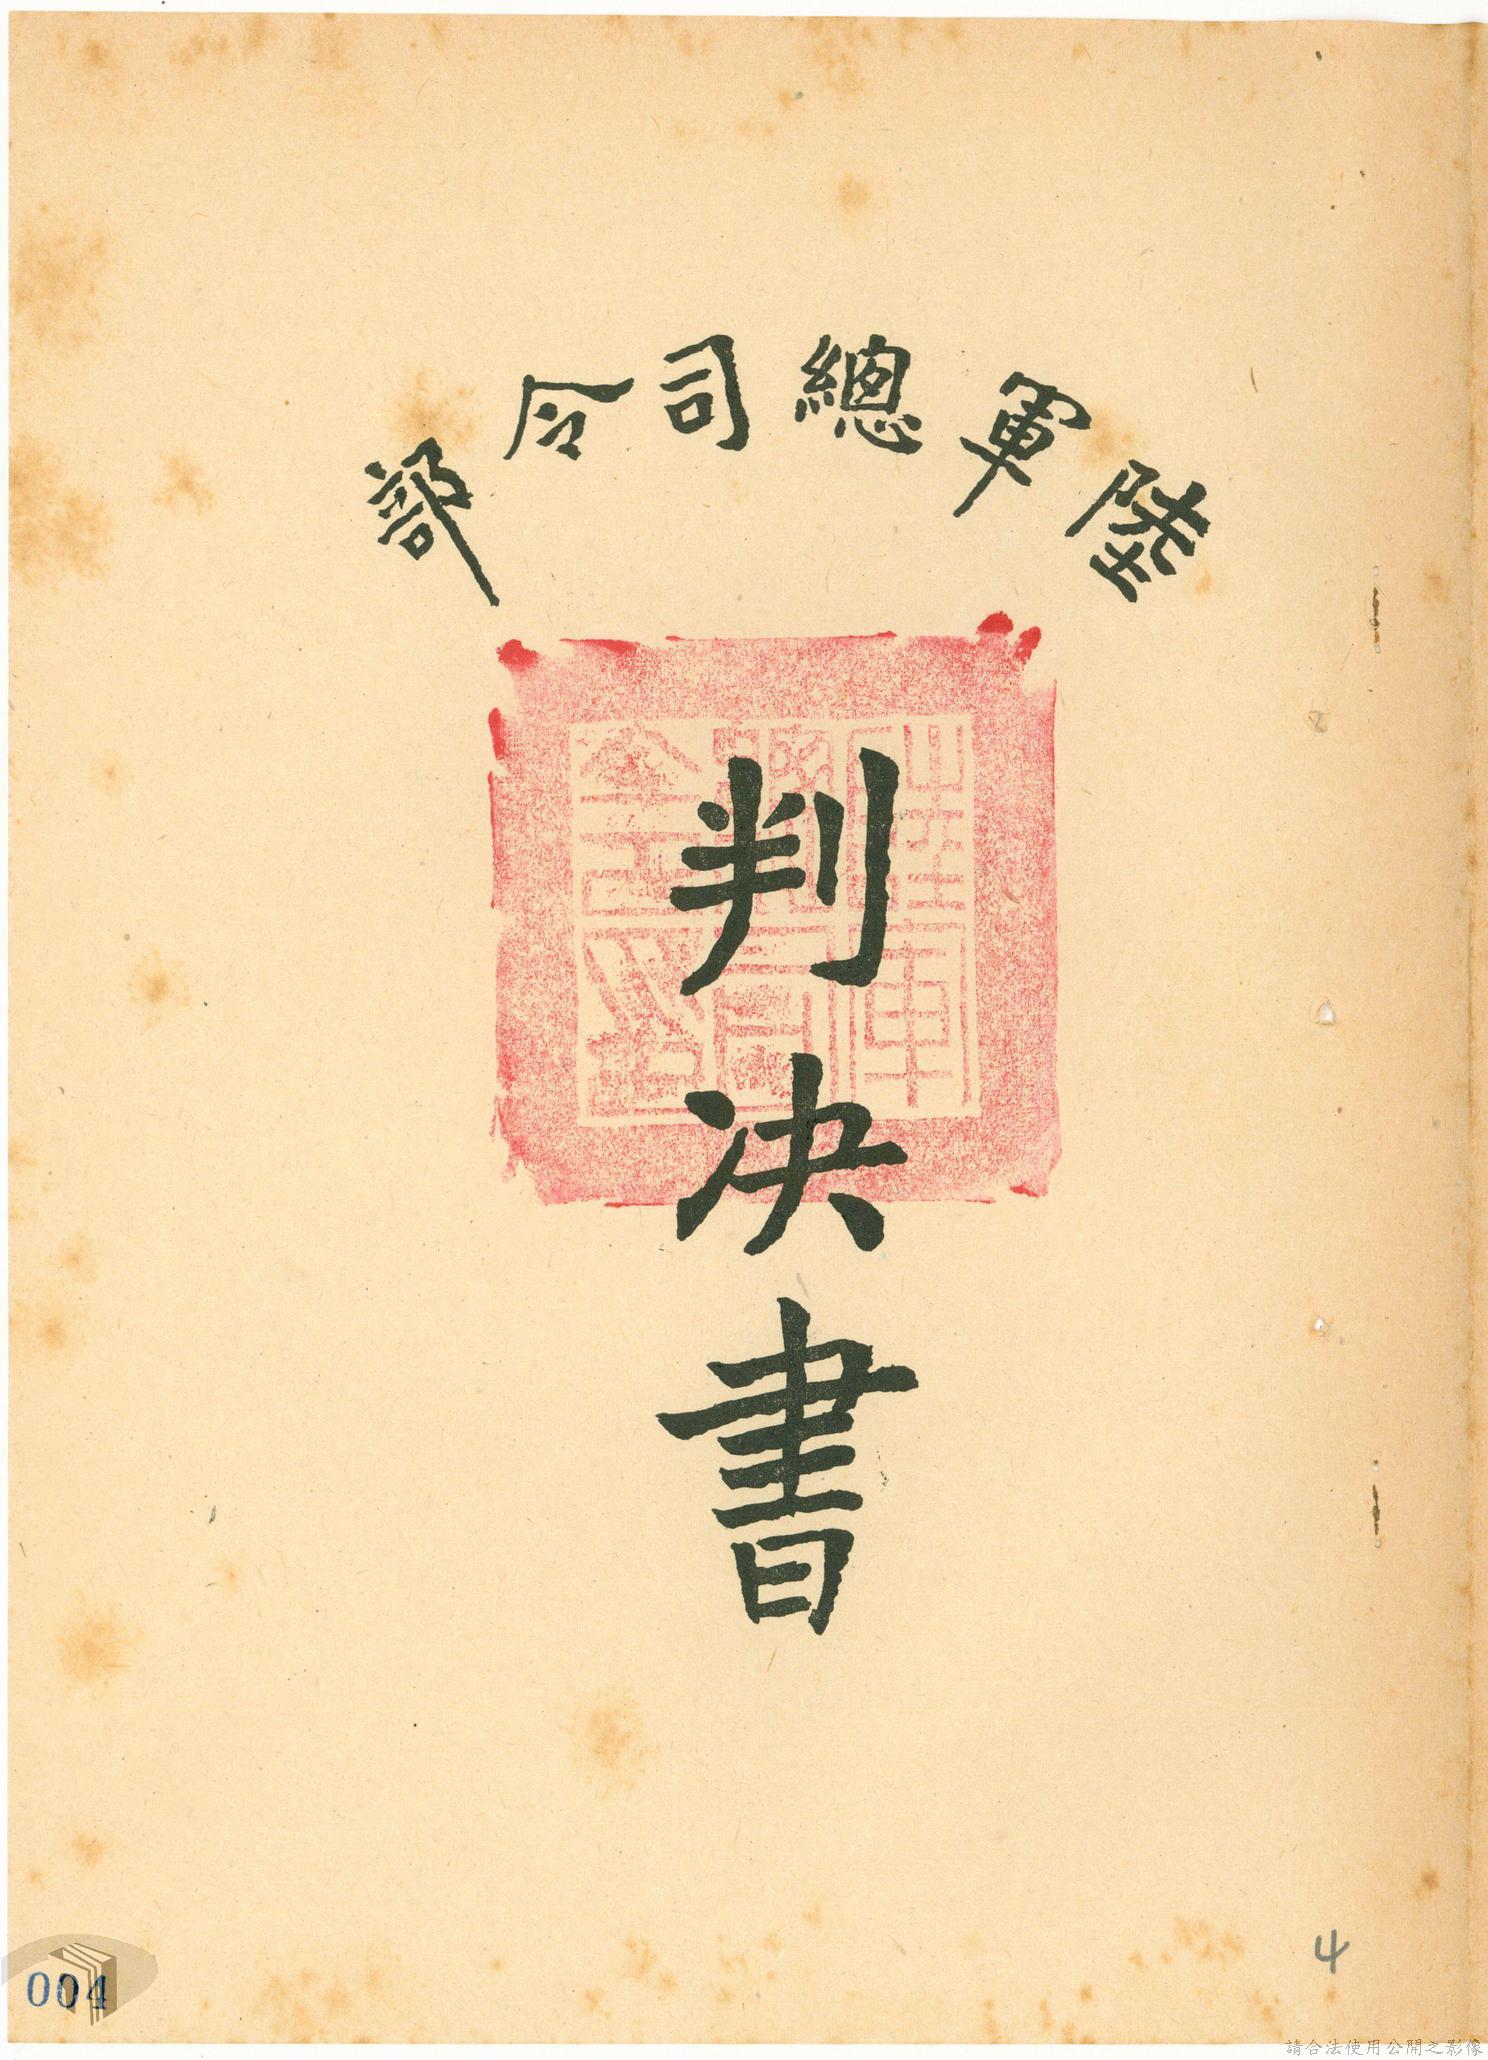 陸軍總司令部
判決書
004
4
請合法使用公開之影像